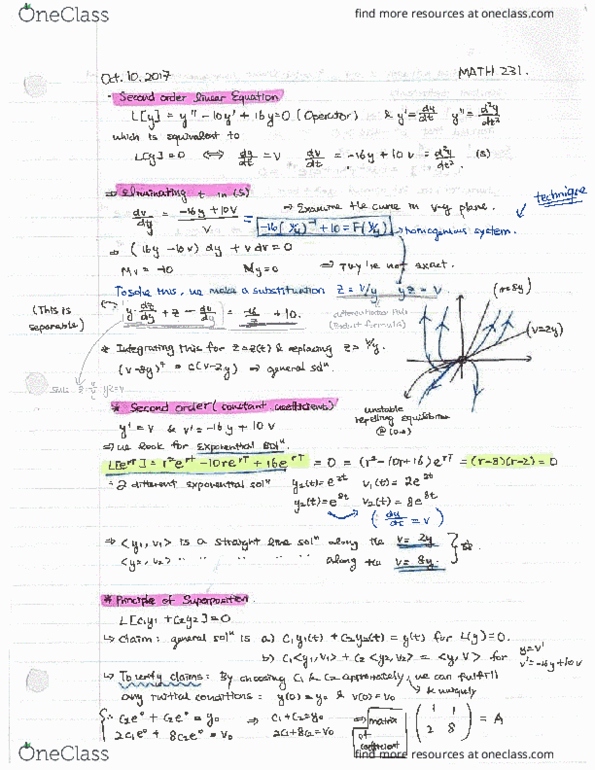 OneClass
find more resources at oneclass.com
Oct. 10. 2017
MATH 231.
Second order linear Equation
L[y] = y'' - 10y' + 16y = 0 (Operator) & y' = dy/dt y'' = d²y/dt²
which is equivalent to
L[y] = 0 ⟺ dy/dt = v dv/dt = -16y + 10v = d²y/dt². (S)
⇒ Eliminating t in (S)
dv/dy = (-16y + 10v)/v = -16(v/y)⁻¹ + 10 = F(v/y)
⇒ Examine the curve in v-y plane.
technique
→ homogenius system.
⇒ (16y - 10v) dy + v dv = 0
Mv = -10 My = 0 ⇒ They're not exact.
To solve this, we make a substitution z = v/y yz = v
(This is separable)
y dz/dy + z = -16/z + 10.
(Product formula)
* Integrating this for z = z(t) & replacing z = v/y.
(v-8y)⁴ = c(v-2y) ⇒ general solⁿ
(v=8y)
(v=2y)
unstable
repelling equilibrium
@ (0,0)
* Second order (constant coefficients)
y' = v & v' = -16y + 10v
⇒ we look for exponential solⁿ
L[e^rt] = r²e^rt - 10re^rt + 16e^rt = 0 = (r² - 10r + 16)e^rt = (r-8)(r-2) = 0
∴ 2 different exponential solⁿ y₁(t) = e^2t v₁(t) = 2e^2t
y₂(t) = e^8t v₂(t) = 8e^8t
(dy/dt = v)
⇒ <y₁, v₁> is a straight line solⁿ along the v = 2y
<y₂, v₂> " " " " along the v = 8y
* Principle of Superposition.
L[c₁y₁ + c₂y₂] = 0
↳ Claim: general solⁿ is a) c₁y₁(t) + c₂y₂(t) = y(t) for L(y) = 0.
b) c₁<y₁, v₁> + c₂<y₂, v₂> = <y, v> for y' = v v' = -16y + 10v
↳ To verify claims: By choosing c₁ & c₂ approriately, we can fulfill
& uniquely
any initial conditions: y(0) = y₀ & v(0) = v₀
∴ c₁e⁰ + c₂e⁰ = y₀ ⇒ c₁ + c₂ = y₀ ⇒ matrix of coefficient (1 1
2c₁e⁰ + 8c₂e⁰ = v₀ 2c₁ + 8c₂ = v₀ 2 8) = A
OneClass
find more resources at oneclass.com